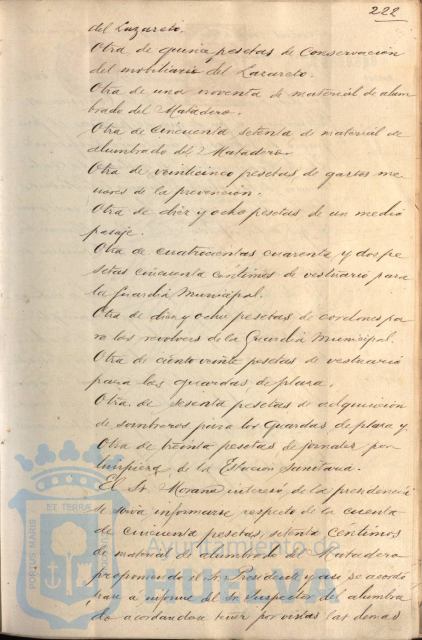 222
del Lazareto.
Otra de quince pesetas de conservación
del mobiliario del Lazareto.
Otra de una noventa de material de alum
brado del Matadero.
Otra de cincuenta setenta de material de
alumbrado del Matadero.
Otra de veinticinco pesetas de gastos me
nores de la prevención.
Otra de diez y ocho pesetas de un medio
pasaje.
Otra de cuatrocientas cuarenta y dos pe
setas cincuenta céntimos de vestuario para
la Guardia Municipal.
Otra de diez y ocho pesetas de cordones pa
ra los revolvers de la Guardia Municipal.
Otra de ciento veinte pesetas de vestuario
para los guardas de plaza.
Otra de sesenta pesetas de adquisición
de sombreros para los Guardas de plaza y
Otra de treinta pesetas de jornales por
limpieza de la Estación Sanitaria.
El Sr. Morano interesó de la presidencia
se sirva informarse respecto de la cuenta
de cincuenta pesetas, setenta céntimos
de material de alumbrado del Matadero
proponiendo el Sr. Presidente y así se acordó
pase a informe del Sr. Inspector del alumbra
do acordandose tener por vistas las demas
PORTUS MARIS ET TERRAE
Ayuntamiento de
HUELVA